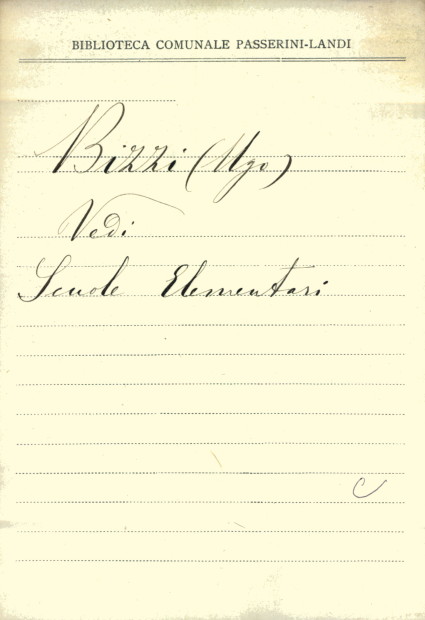 BIBLIOTECA COMUNALE PASSERINI-LANDI
Bizzi (Ugo)
Vedi
Scuole Elementari
C